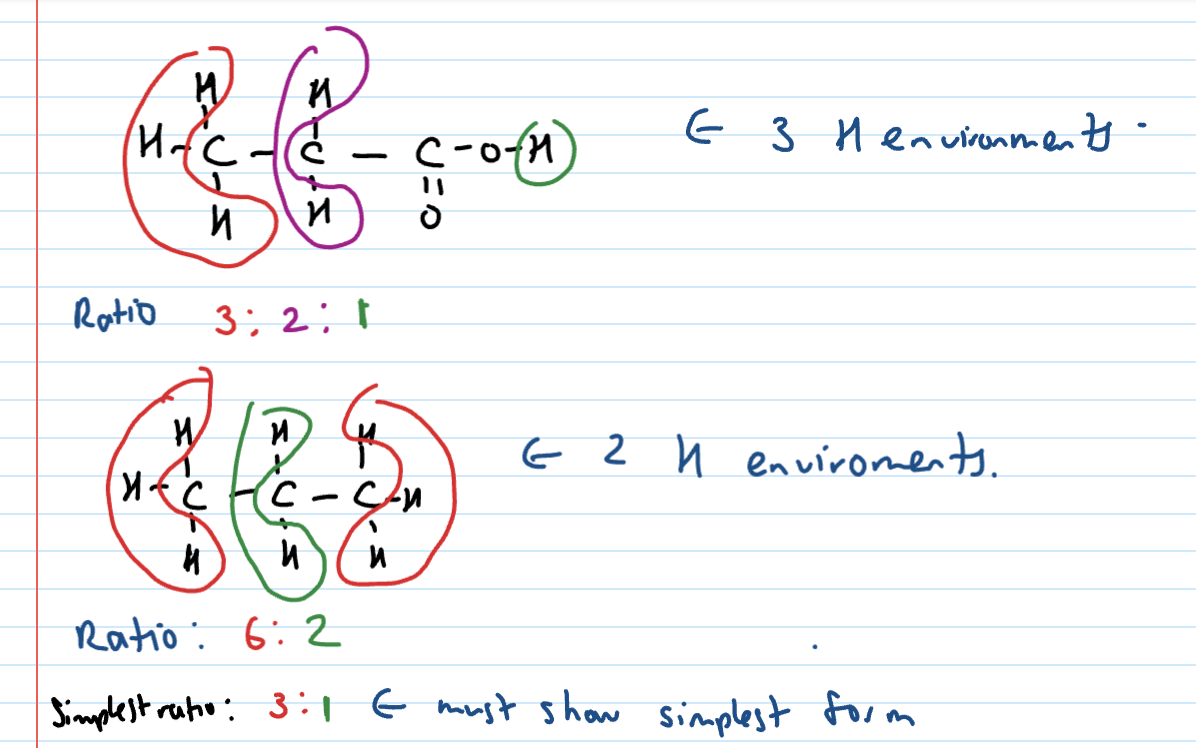 H H
H-C-C-C-O-H
H H O
∈ 3 H environments.
Ratio 3:2:1
H H H
H-C-C-C-H
H H H
∈ 2 H enviroments.
Ratio: 6:2
Simplest ratio: 3:1 ∈ must show simplest form